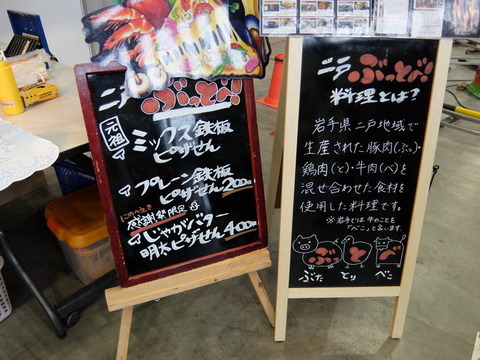 二戸ぶっとべ!!
元祖
ミックス鉄板
ピザせん
プレーン鉄板
ピザせん200円
感謝祭限定
じゃがバター
明太ピザせん400円
二戸ぶっとべ!!
料理とは?
岩手県二戸地域で
生産された豚肉(ぶっ)・
鶏肉(と)・牛肉(べ)を
混ぜ合わせた食材を
使用した料理です。
※岩手では牛のことを
「べこ」と言います。
ぶ
と
べ
ぶた
とり
べこ